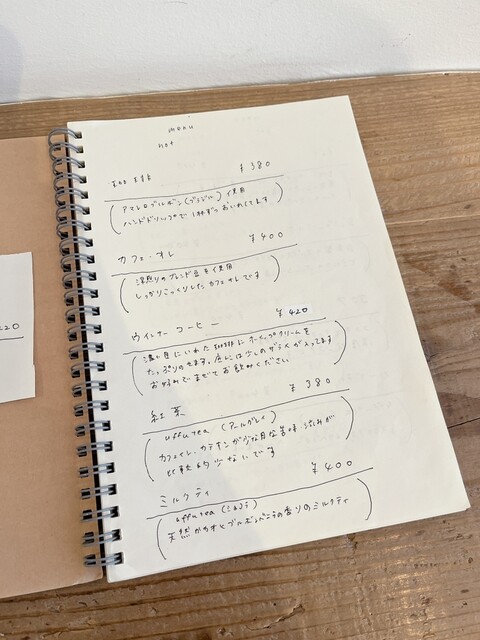 menu
hot
珈琲 ¥380
(アマレロブルボン(ブラジル)使用
ハンドドリップで1杯ずつおいれしてます)
カフェ・オレ ¥400
(深煎りのブレンド豆を使用
しっかりこっくりしたカフェオレです)
ウインナーコーヒー ¥420
(濃い目にいれた珈琲にホイップクリームを
たっぷりのせます。底には少しのザラメが入ってます
お好みでまぜてお飲みください)
紅茶 ¥380
(uffu tea (アールグレイ)
カフェイン・カテキンが少な目な苦味 渋みが
比較的少ないです)
ミルクティ ¥400
(uffu tea (ショコラ)
天然カカオとブルボンバニラの香りのミルクティ)
220